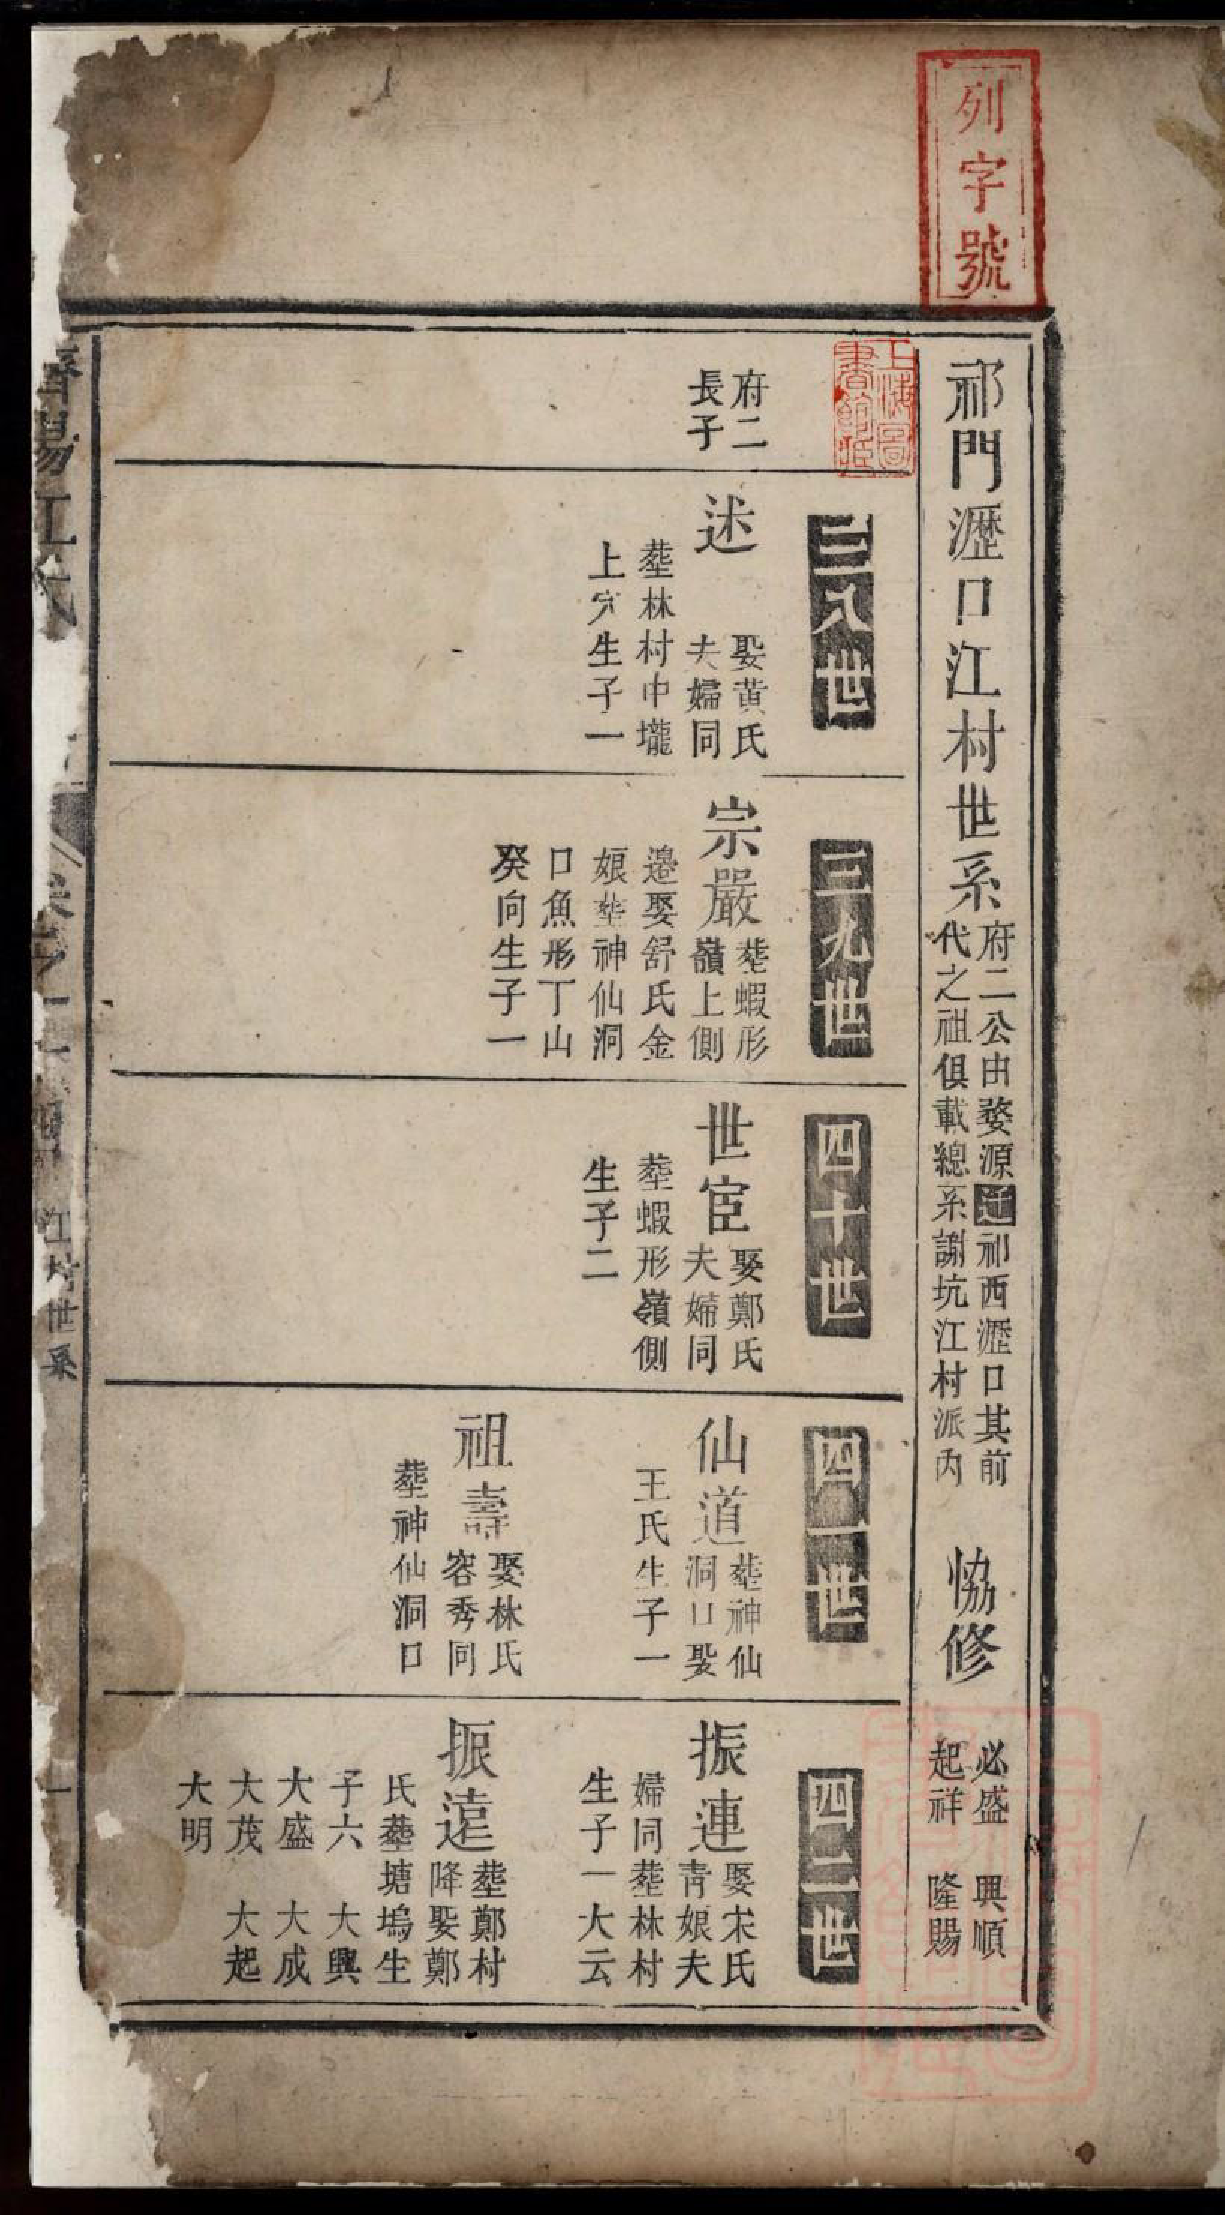 列字號
祁門瀝口江村世系
府二公由婺源迁祁西瀝口其前
代之祖俱載總系謝坑江村派內
恊修
必盛 興順
起祥 隆賜
上海圖
書館藏
府二
長子
三八世
述
娶黃氏
夫婦同
塟林村中壠
上穴生子一
三九世
宗嚴
塟蝦形
嶺上側
邉娶舒氏金
娘塟神仙洞
口魚形丁山
癸向生子一
四十世
世宦
娶鄭氏
夫婦同
塟蝦形嶺側
生子二
四一世
仙道
塟神仙
洞口娶
王氏生子一
祖壽
娶林氏
容秀同
塟神仙洞口
四二世
振連
娶宋氏
青娘夫
婦同塟林村
生子一大云
振遠
塟鄭村
降娶鄭
氏塟塘塢生
子六 大興
大盛 大成
大茂 大起
大明
濟陽江氏
江村世系